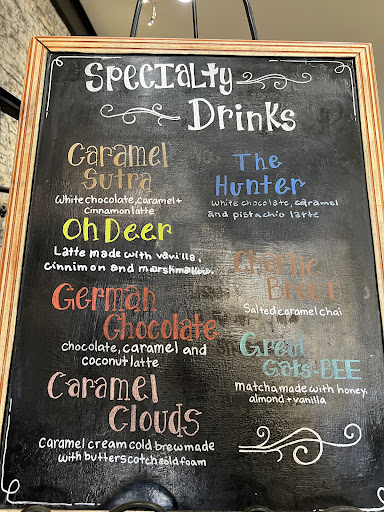 Specialty
Drinks
Caramel
Sutra
White chocolate, caramel +
Cinnamon latte
Oh Deer
Latte made with vanilla,
cinnimon and marshmallow.
German
Chocolate
chocolate, caramel and
coconut latte
Caramel
Clouds
Caramel cream cold brew made
with butterscotch cold foam
The
Hunter
White chocolate, caramel
and pistachio latte
Charlie
Brown
Salted caramel chai
Great
Gats-BEE
Matcha made with honey,
almond + vanilla